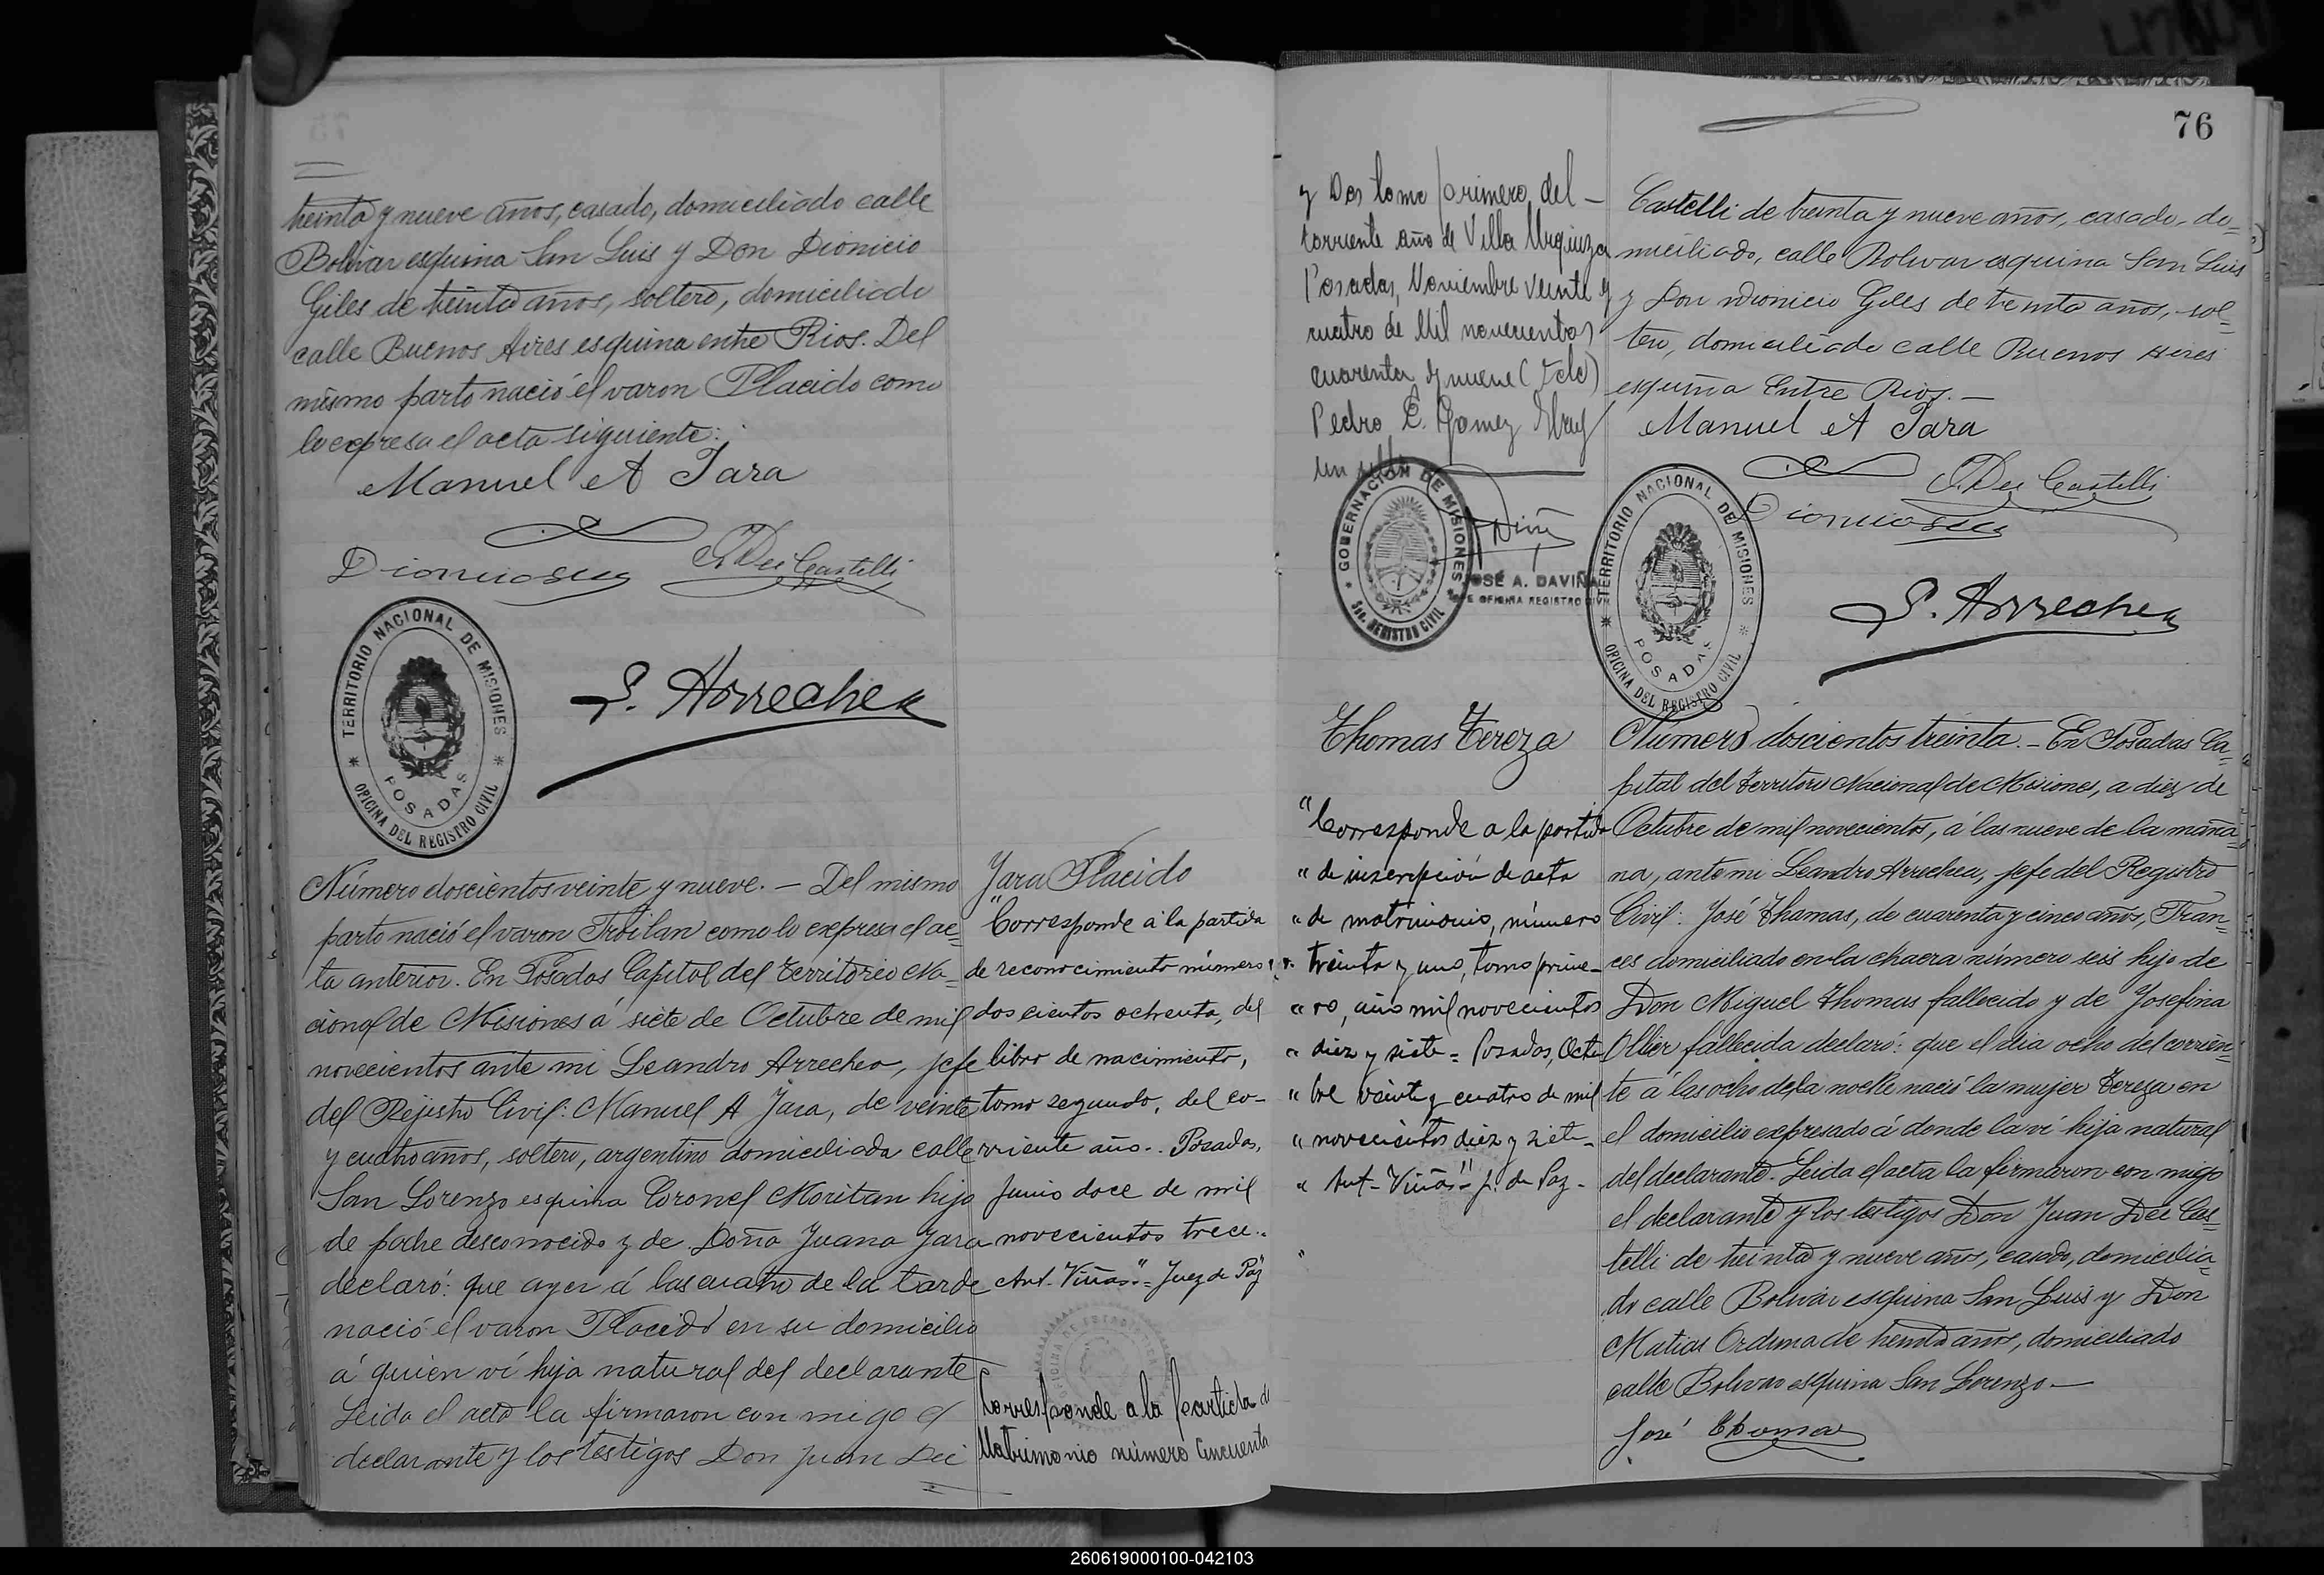 treinta y nueve años, casado, domiciliado calle
Bolivar esquina San Luis y Don Dionicio
Giles de treinta años, soltero, domiciliado
calle Buenos Aires esquina entre Rios. Del
mismo parto nació el varon Placido como
lo expresa el acta siguiente:
Manuel A Jara
J Dei Castelli
TERRITORIO NACIONAL DE MISIONES
POSADAS
OFICINA DEL REGISTRO CIVIL
L. Arrechea
Número doscientos veinte y nueve. — Del mismo
parto nació el varon Troilan como lo expresa el ac=
ta anterior. En Posadas Capital del Territorio Na=
cional de Misiones á siete de Octubre de mil
novecientos ante mi Leandro Arrechea, jefe
del Rejistro Civil: Manuel A Jara, de veinte
y cuatro años, soltero, argentino domiciliado calle
San Lorenzo esquina Coronel Moritan hijo
de padre desconocido y de Doña Juana Jara
declaró: que ayer á las cuatro de la tarde
nació el varon Placido en su domicilio
á quien ví hijo natural del declarante
Leida el acta la firmaron con migo el
declarante y los testigos Don Juan Dei
Jara Placido
"Corresponde a la partida
de reconocimiento número
doscientos ochenta, del
libro de nacimiento,
tomo segundo, del co-
rriente año.. Posadas,
Junio doce de mil
novecientos trece..
Ant. Viñas."= Juez de Paz
Corresponde a la partida de
Matrimonio número Cincuenta
76
y Dos tomo primero del —
corriente año de Villa Urquiza
Posadas, Noviembre veinte y
cuatro de Mil novecientos
cuarenta y nueve (Fdo)
Pedro E. Gomez
un sello
GOBERNACION DE MISIONES
Sec. REGISTRO CIVIL
JOSÉ A. DAVIÑA
JEFE OFICINA REGISTRO CIVIL
Castelli de treinta y nueve años, casado, do=
miciliado, calle Bolivar esquina San Luis
y Don Dionicio Giles de treinta años, sol=
tero, domiciliado calle Buenos Aires
esquina Entre Rios. —
Manuel A Jara
J Dei Castelli
TERRITORIO NACIONAL DE MISIONES
POSADAS
OFICINA DEL REGISTRO CIVIL
L. Arrechea
Thomas Tereza
"Corresponde a la partida
" de inscripción de acta
" de matrimonio, número
" treinta y uno, tomo prime-
" ro, año mil novecientos
" diez y siete = Posadas, Octu
" bre veinte y cuatro de mil
" novecientos diez y siete-
" Ant- Viñas" J. de Paz-
Número doscientos treinta. — En Posadas Ca=
pital del Territorio Nacional de Misiones, a diez de
Octubre de mil novecientos, á las nueve de la maña=
na, ante mi Leandro Arrechea, jefe del Registro
Civil: José Thomas, de cuarenta y cinco años, Fran=
ces domiciliado en la chacra número seis hijo de
Don Miguel Thomas fallecido y de Josefina
Ollier fallecida declaró: que el dia ocho del corrien=
te á las ocho de la noche nació la mujer Tereza en
el domicilio expresado á donde la ví hija natural
del declarante. Leida el acta la firmaron con migo
el declarante y los testigos Don Juan Dei Cas=
telli de treinta y nueve años, casado, domicilia=
do calle Bolivar esquina San Luis y Don
Matias Orduna de treinta años, domiciliado
calle Bolivar esquina San Lorenzo —
José Thomas
260619000100-042103